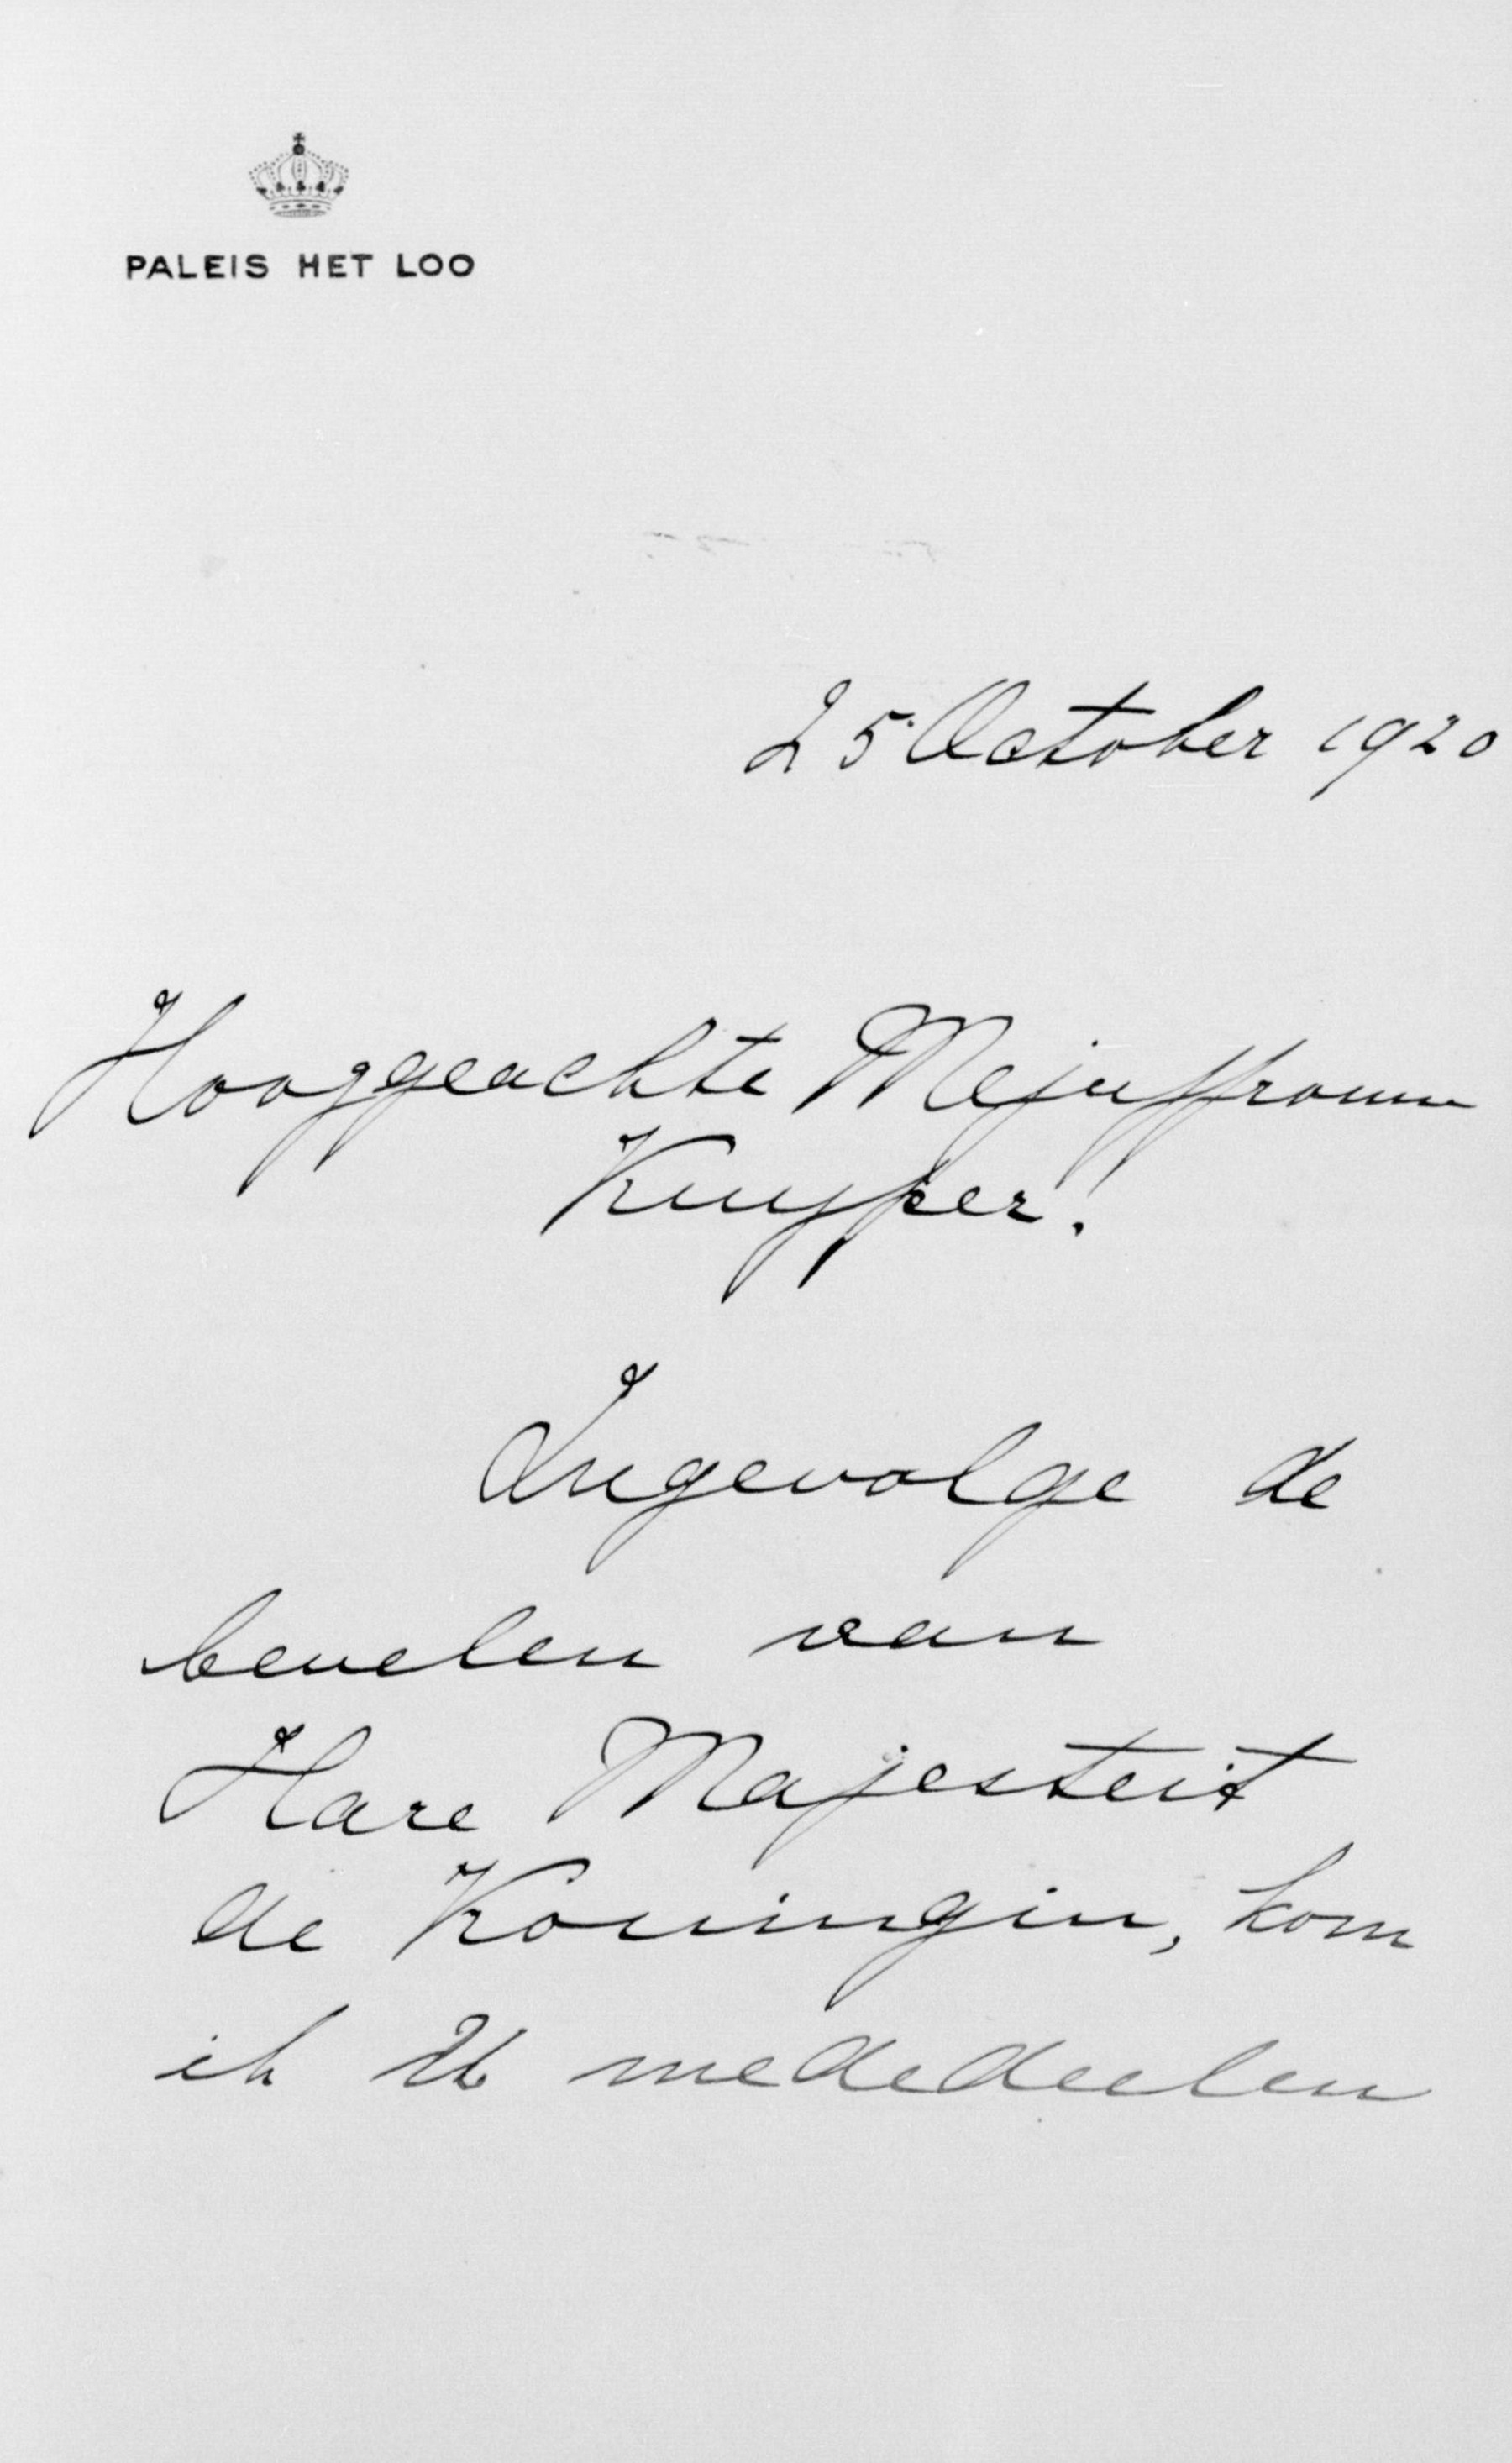 PALEIS HET LOO
25 October 1920
Hooggeachte Mejuffrouw
Kuyper!
Ingevolge de
bevelen van
Hare Majesteit
de Koningin, kom
ik U mededeelen